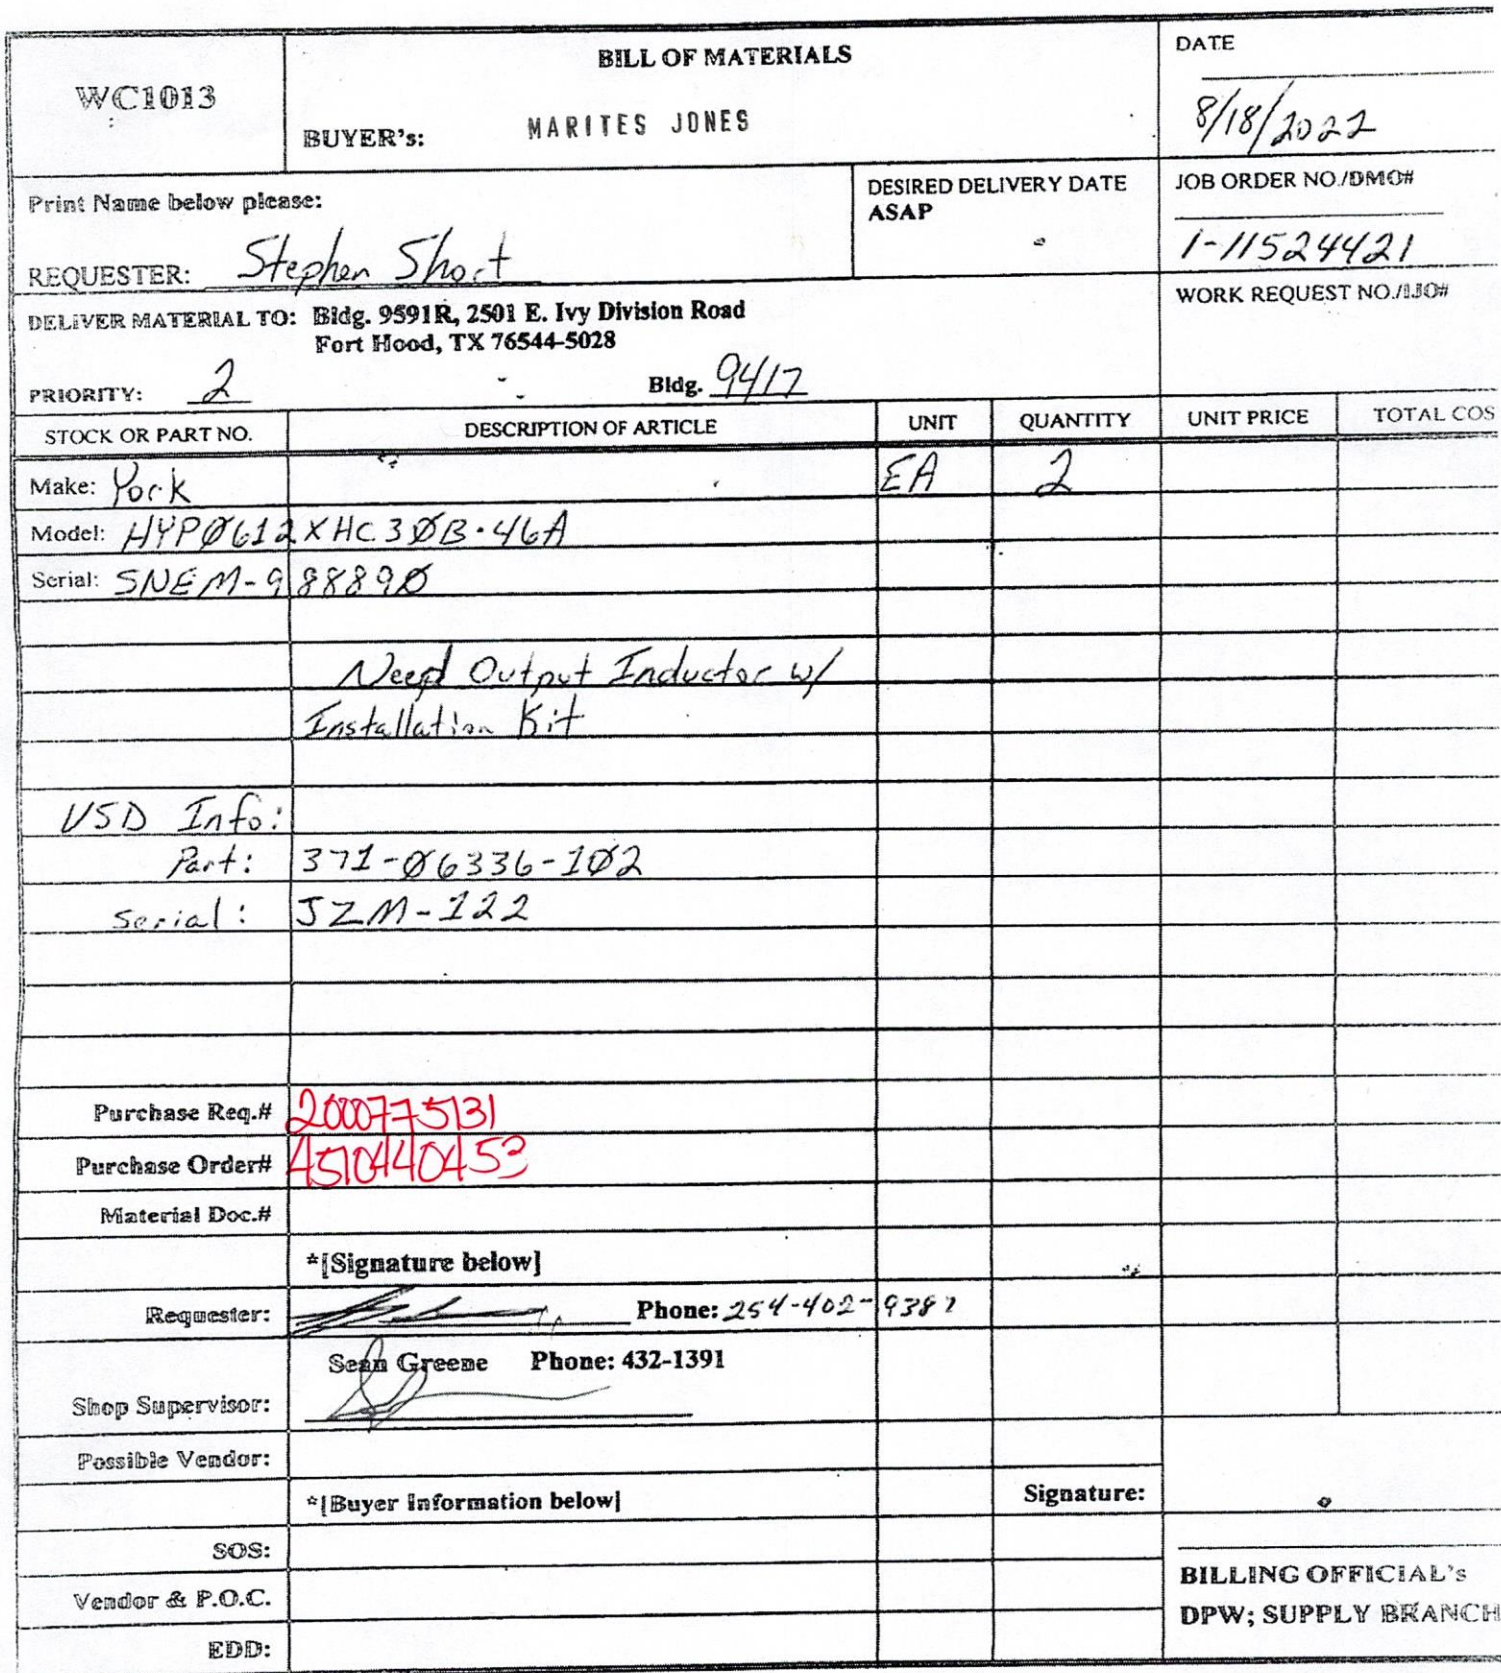 WC1013
BILL OF MATERIALS
BUYER's: MARITES JONES
DATE
8/18/2022
Print Name below please:
REQUESTER: Stephen Short
DESIRED DELIVERY DATE
ASAP
JOB ORDER NO./DMO#
1-11524421
DELIVER MATERIAL TO: Bldg. 9591R, 2501 E. Ivy Division Road
Fort Hood, TX 76544-5028
WORK REQUEST NO./IJO#
PRIORITY: 2 Bldg. 9417
STOCK OR PART NO. DESCRIPTION OF ARTICLE UNIT QUANTITY UNIT PRICE TOTAL COS
Make: York EA 2
Model: HYPØ612XHC3ØB-46A
Serial: SNEM-98889Ø
Need Output Inductor w/
Installation Kit
VSD Info:
Part: 371-Ø6336-1Ø2
Serial: JZM-122
Purchase Req.# 2000775131
Purchase Order# 4510440453
Material Doc.#
*[Signature below]
Requester: Phone: 254-402-9387
Sean Greene Phone: 432-1391
Shop Supervisor:
Possible Vendor:
*[Buyer Information below] Signature:
SOS:
Vendor & P.O.C.
EDD:
BILLING OFFICIAL's
DPW; SUPPLY BRANCH